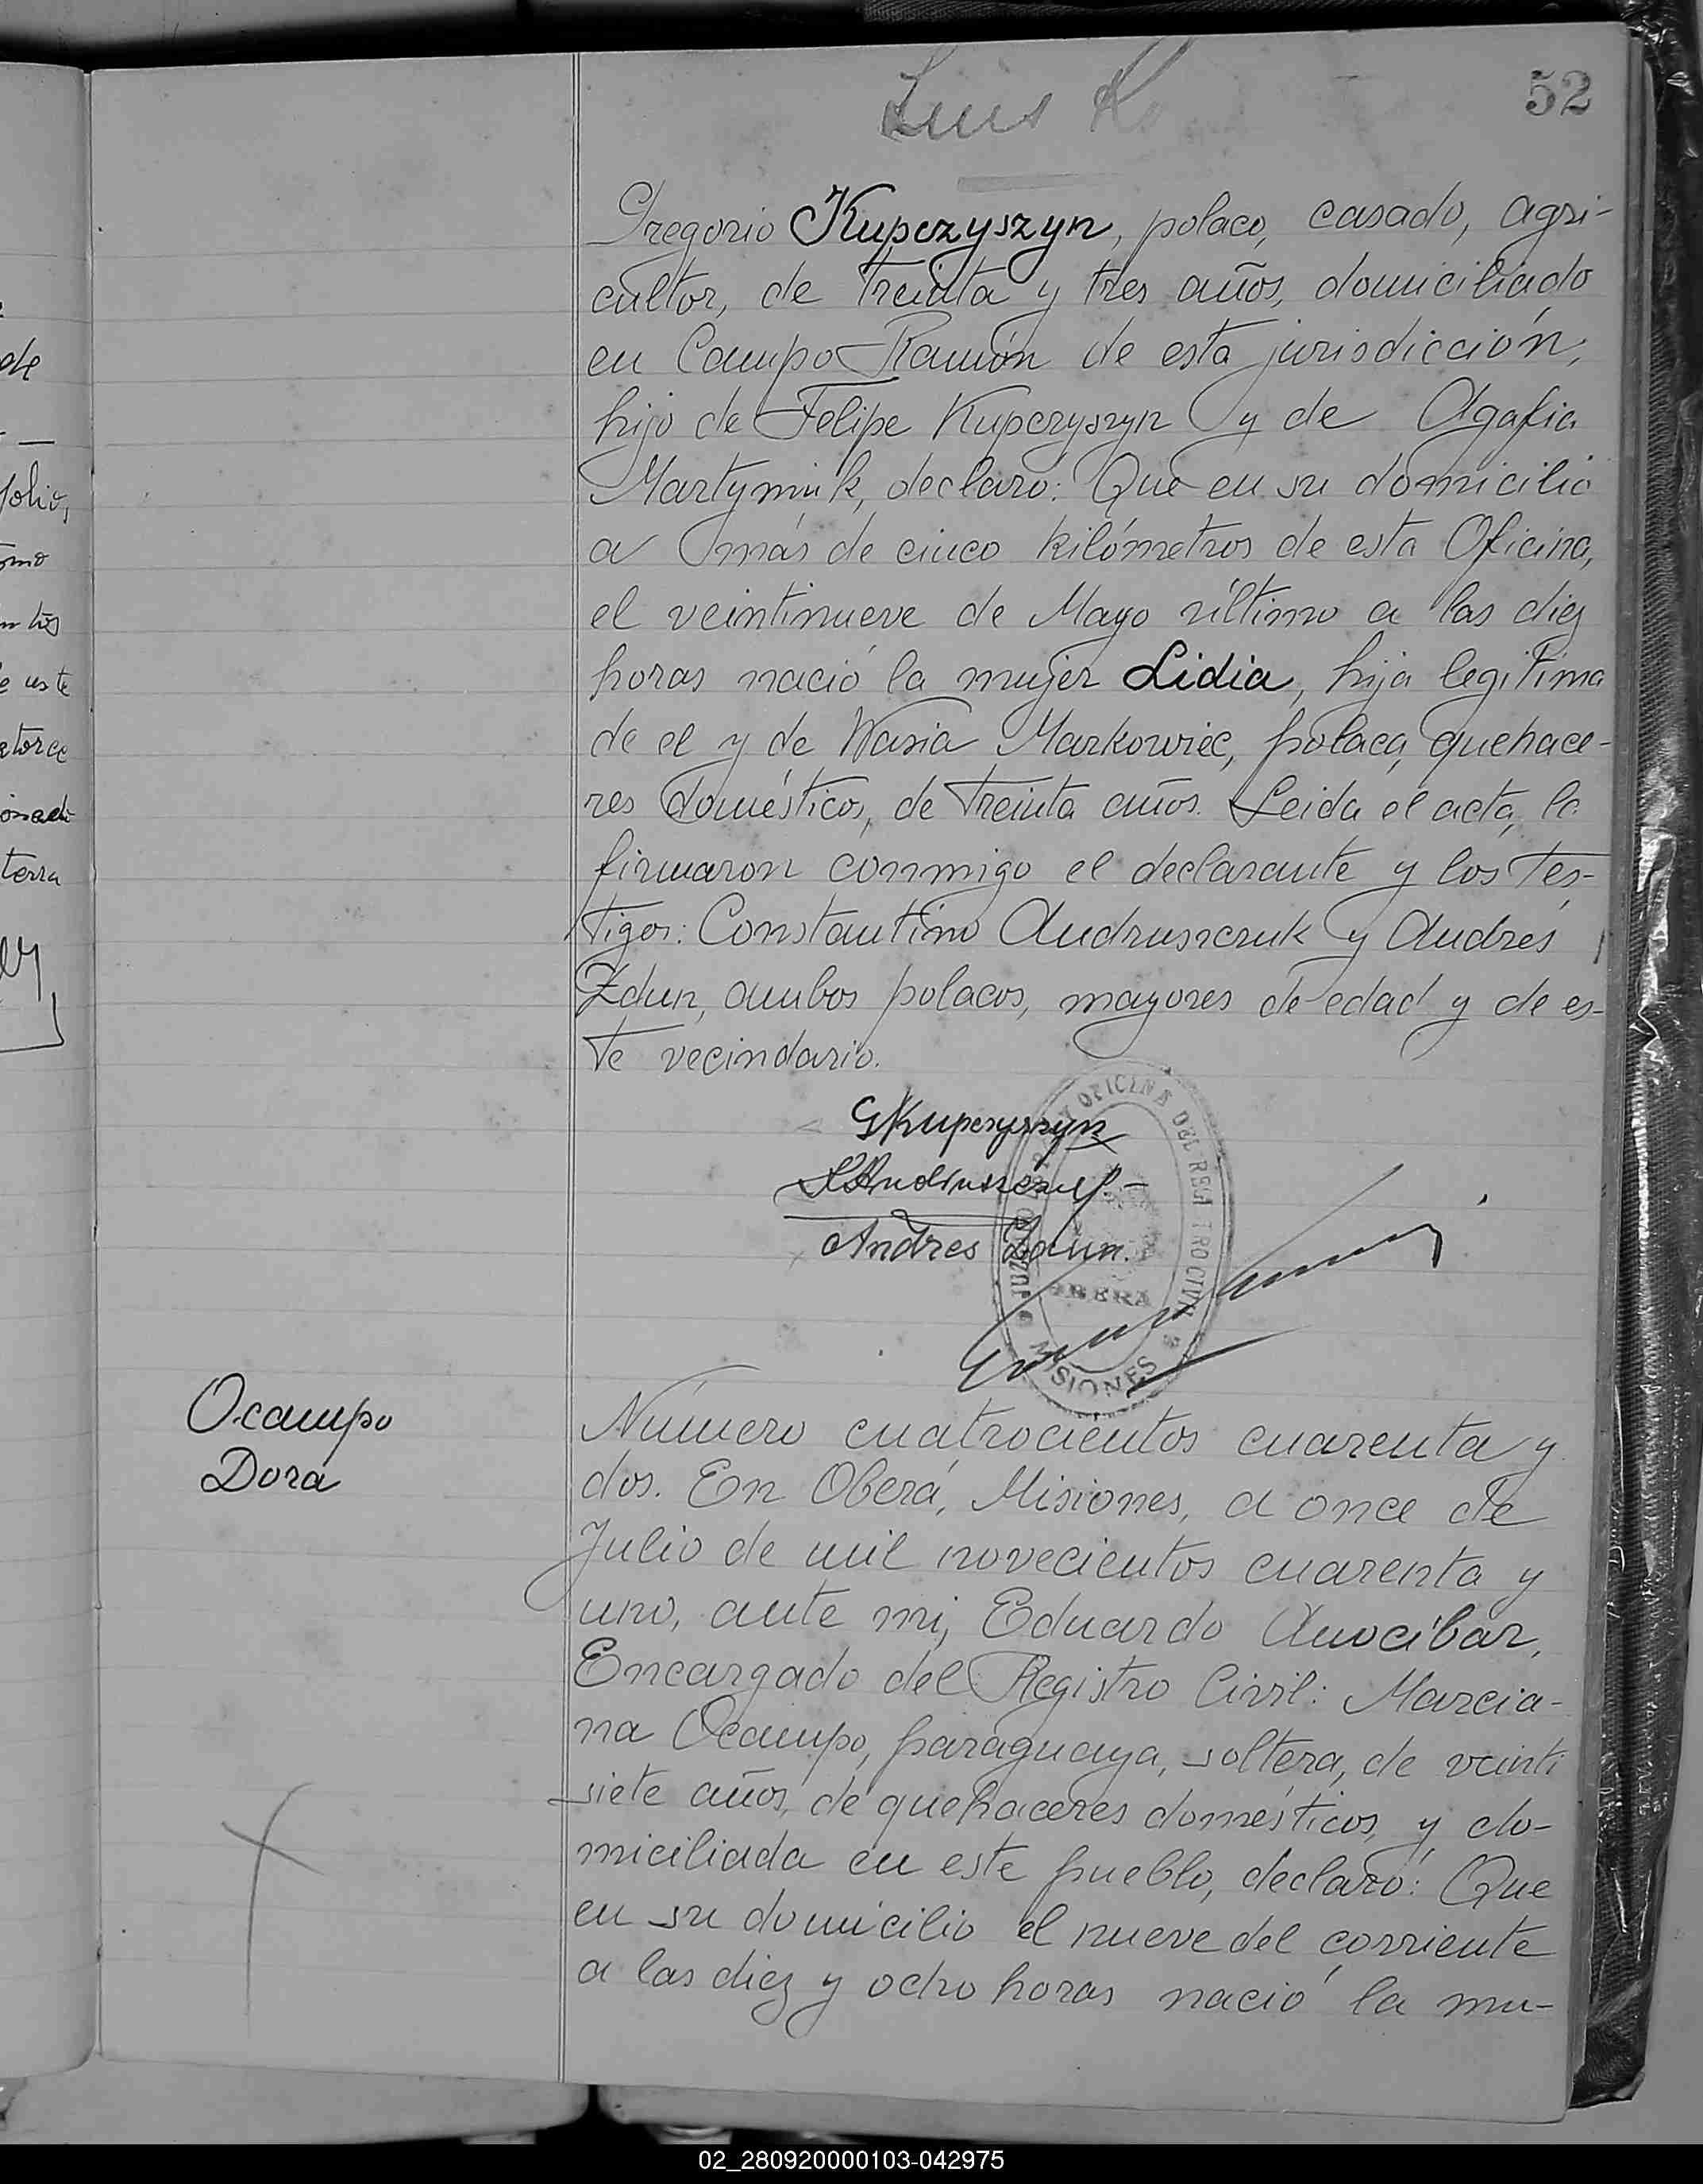 52
Luis K
Gregorio Kupczyszyn, polaco, casado, agri-
cultor, de treinta y tres años, domiciliado
en Campo Ramón de esta jurisdicción,
hijo de Felipe Kupczyszyn y de Agafia
Martyniuk, declaró: Que en su domicilio
a más de cinco kilómetros de esta Oficina,
el veintinueve de Mayo último a las diez
horas nació la mujer Lidia, hija legítima
de el y de Wasia Markowiec, polaca, quehace-
res domésticos, de treinta años. Leida el acta, la
firmaron conmigo el declarante y los tes-
tigos: Constantino Andruszczuk y Andrés
Zdun, ambos polacos, mayores de edad y de es-
te vecindario.
GKupczyszyn
Andres Zdun.
OFICINA DEL REGISTRO CIVIL
OBERA
MISIONES
Ocampo
Dora
Número cuatrocientos cuarenta y
dos. En Oberá, Misiones, a once de
Julio de mil novecientos cuarenta y
uno, ante mi, Eduardo Anocibar,
Encargado del Registro Civil: Marcia-
na Ocampo, paraguaya, soltera, de veinti
siete años, de quehaceres domésticos, y do-
miciliada en este pueblo, declaró: Que
en su domicilio el nueve del corriente
a las diez y ocho horas nació la mu-
de
folio,
este
terra
02_280920000103-042975